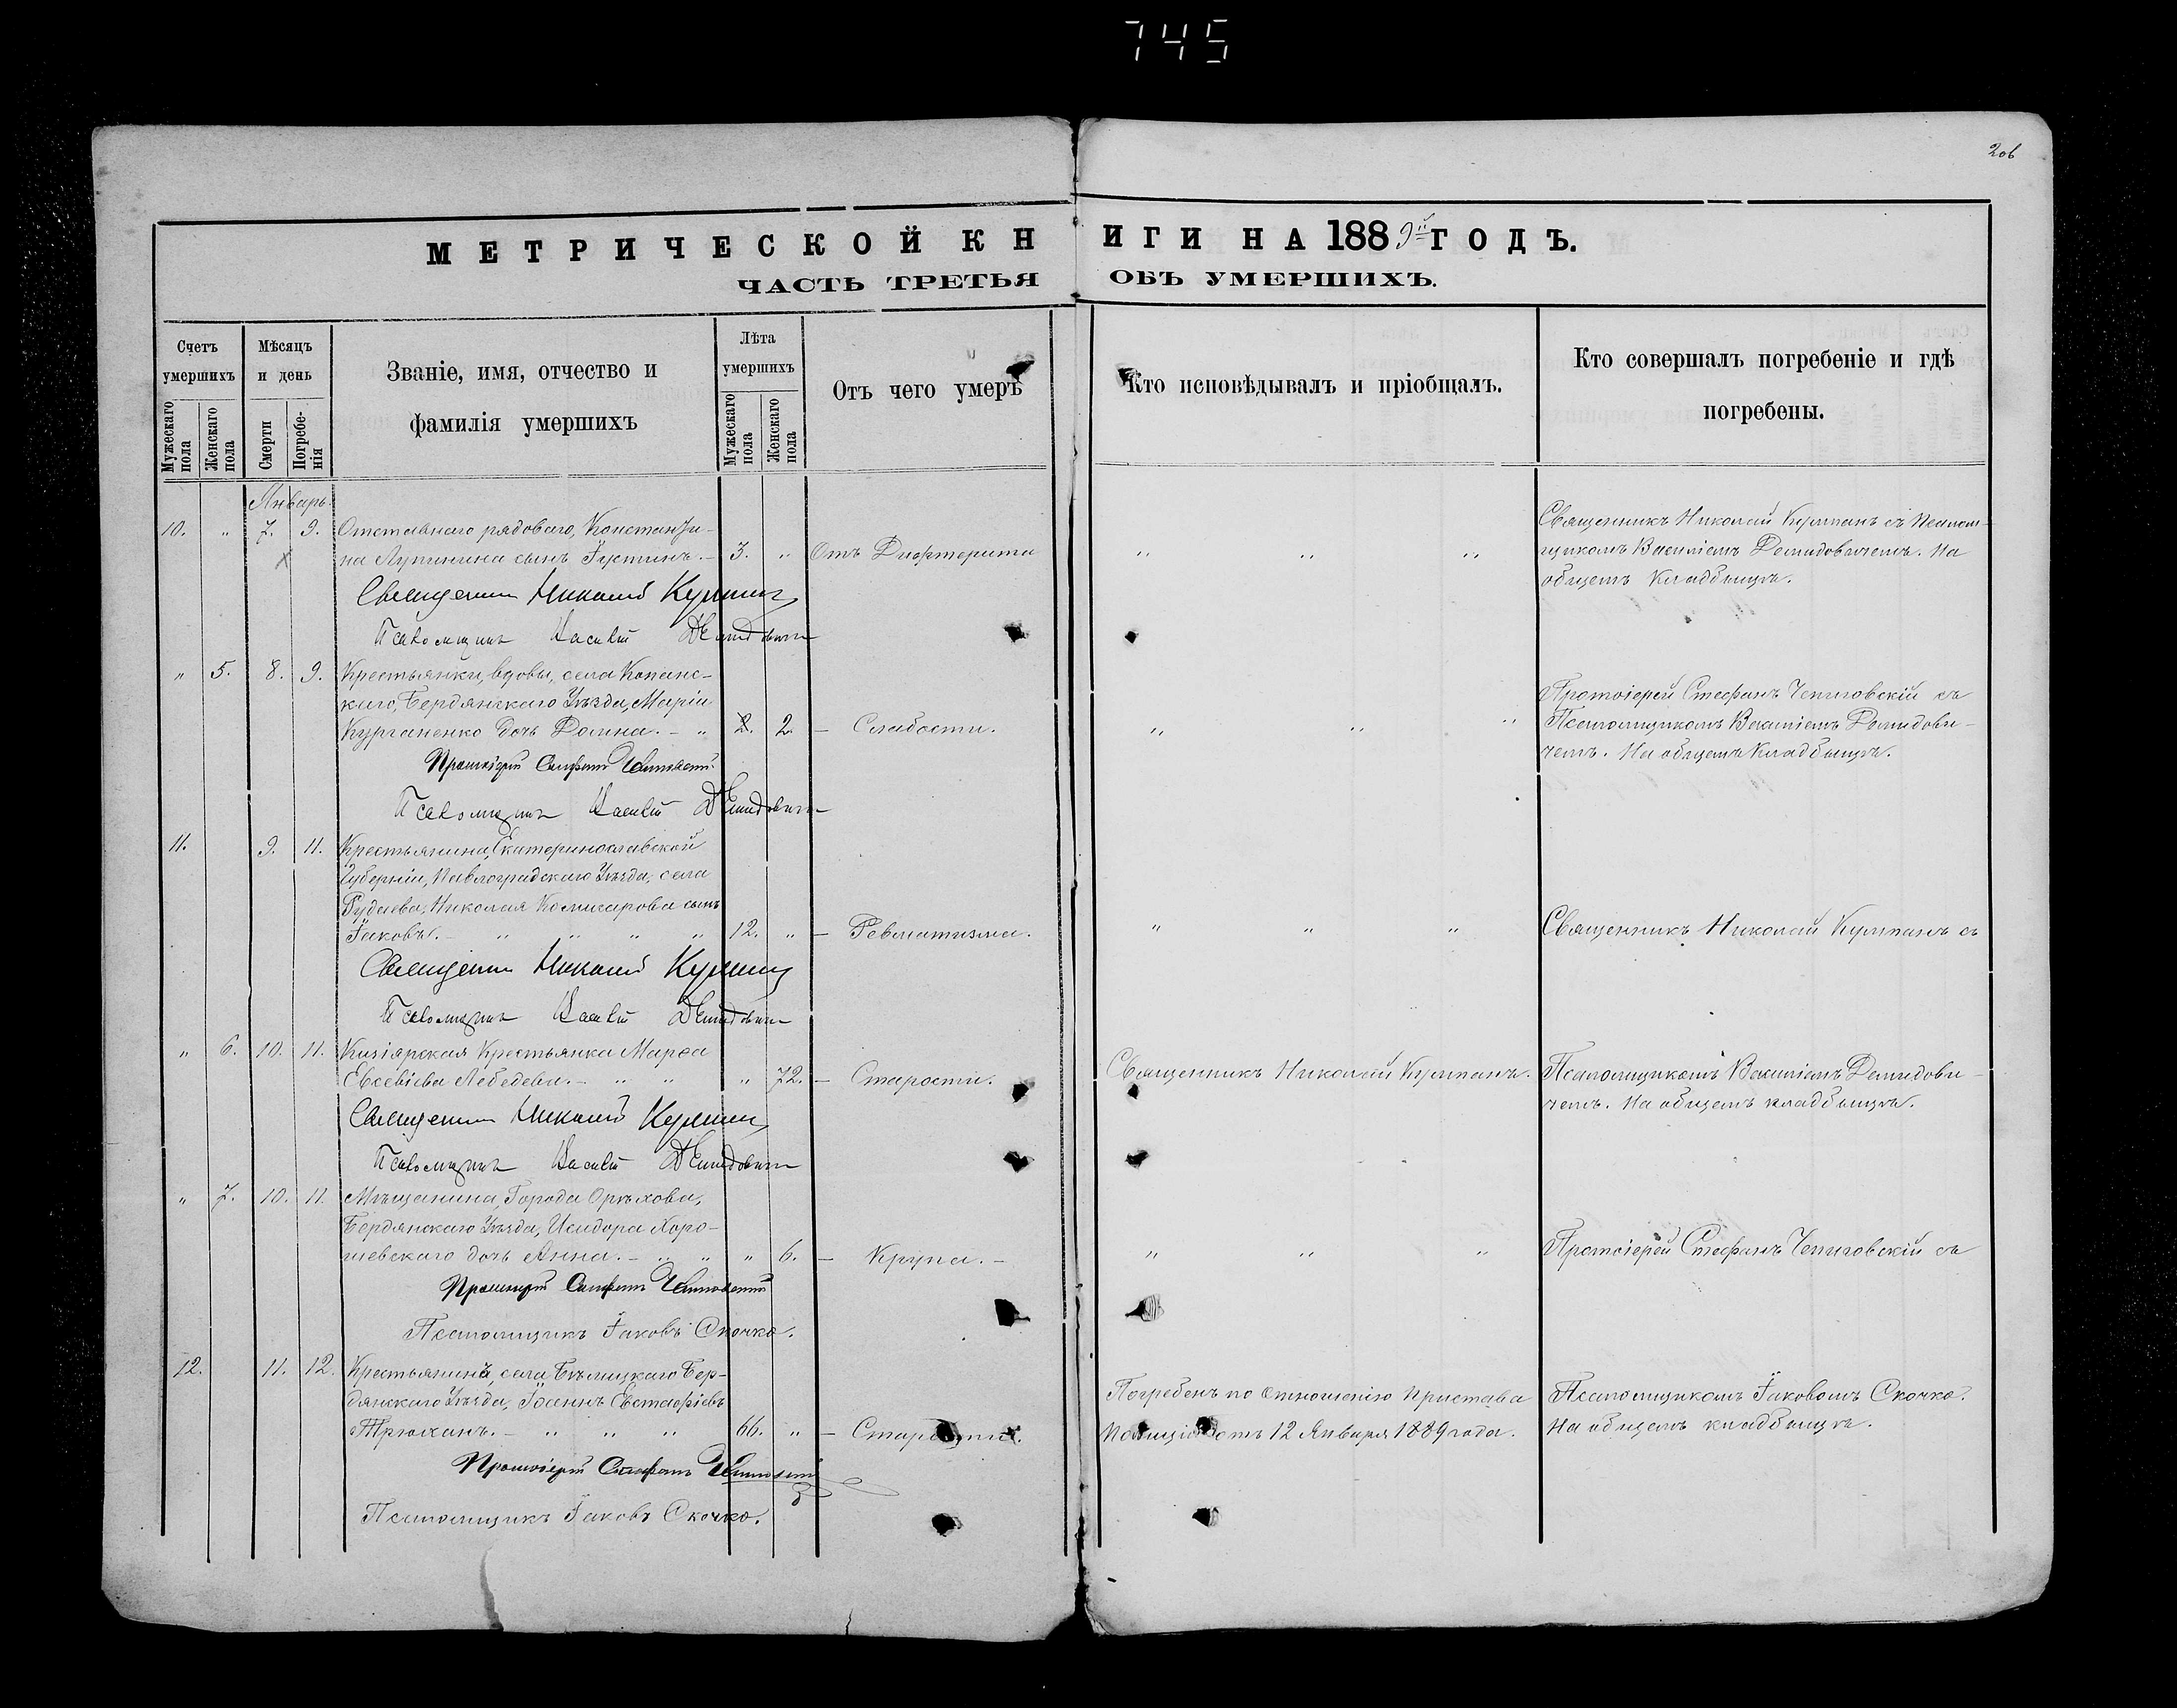 745
206
МЕТРИЧЕСКОЙ КНИГИ НА 1889й ГОДЪ.
ЧАСТЬ ТРЕТЬЯ ОБЪ УМЕРШИХЪ.
Счетъ умершихъ
Мужескаго пола
Женскаго пола
Мѣсяцъ и день
Смерти
Погребенія
Званіе, имя, отчество и
фамилія умершихъ
Лѣта умершихъ
Мужескаго пола
Женскаго пола
Отъ чего умеръ
Кто исповѣдывалъ и пріобщалъ.
Кто совершалъ погребеніе и гдѣ
погребены.
Январь
10. " 7. 9. Отставнаго рядоваго, Константи-
на Лупинина сынъ Іустинъ. – 3. " Отъ Дифтерита " " "
Священникъ Николай Курпанъ съ Псалом-
щикомъ Василіемъ Демидовичемъ. На
общемъ кладбищѣ.
Священникъ Николай
Псаломщикъ Василій Демидовичъ
" 5. 8. 9. Крестьянки, вдовы, села Копанс-
каго, Бердянскаго Уѣзда, Маріи
Курганенко дочь Домна. – " 2. 2. – Слабости. " " "
Протоіерей Стефанъ Чепиговскій съ
Псаломщикомъ Василіемъ Демидови-
чемъ. На общемъ кладбищѣ.
Протоіерей Стефанъ Чепиговскій
Псаломщикъ Василій Демидовичъ
11. 9. 11. Крестьянина, Екатеринославской
Губерніи, Павлоградскаго Уѣзда, села
Рудаева, Николая Комисарова сынъ
Іаковъ. – " " " " 12. " – Ревматизма. " " "
Священникъ Николай Курпанъ съ
Священникъ Николай
Псаломщикъ Василій Демидовичъ
" 6. 10. 11. Кизіярская Крестьянка Марѳа
Евсевіева Лебедева. – " " " 72. – Старости.
Священникъ Николай Курпанъ.
Псаломщикомъ Василіемъ Демидови-
чемъ. На общемъ кладбищѣ.
Священникъ Николай
Псаломщикъ Василій Демидовичъ
" 7. 10. 11. Мѣщанина, Города Орѣхова,
Бердянскаго Уѣзда, Исидора Хоро-
шевскаго дочь Анна. – " " " 6. – Крупа. – " " "
Протоіерей Стефанъ Чепиговскій съ
Протоіерей Стефанъ Чепиговскій
Псаломщикъ Іаковъ Скочко.
12. 11. 12. Крестьянинъ, села Бѣлицкаго Бер-
дянскаго Уѣзда, Іоаннъ Евстафіевъ
Трюханъ. – " " " 66. " – Старости.
Погребенъ по отношенію Пристава
Полиціи отъ 12 Января 1889 года.
Псаломщикомъ Іаковомъ Скочко.
На общемъ кладбищѣ.
Протоіерей Стефанъ Чепиговскій
Псаломщикъ Іаковъ Скочко.